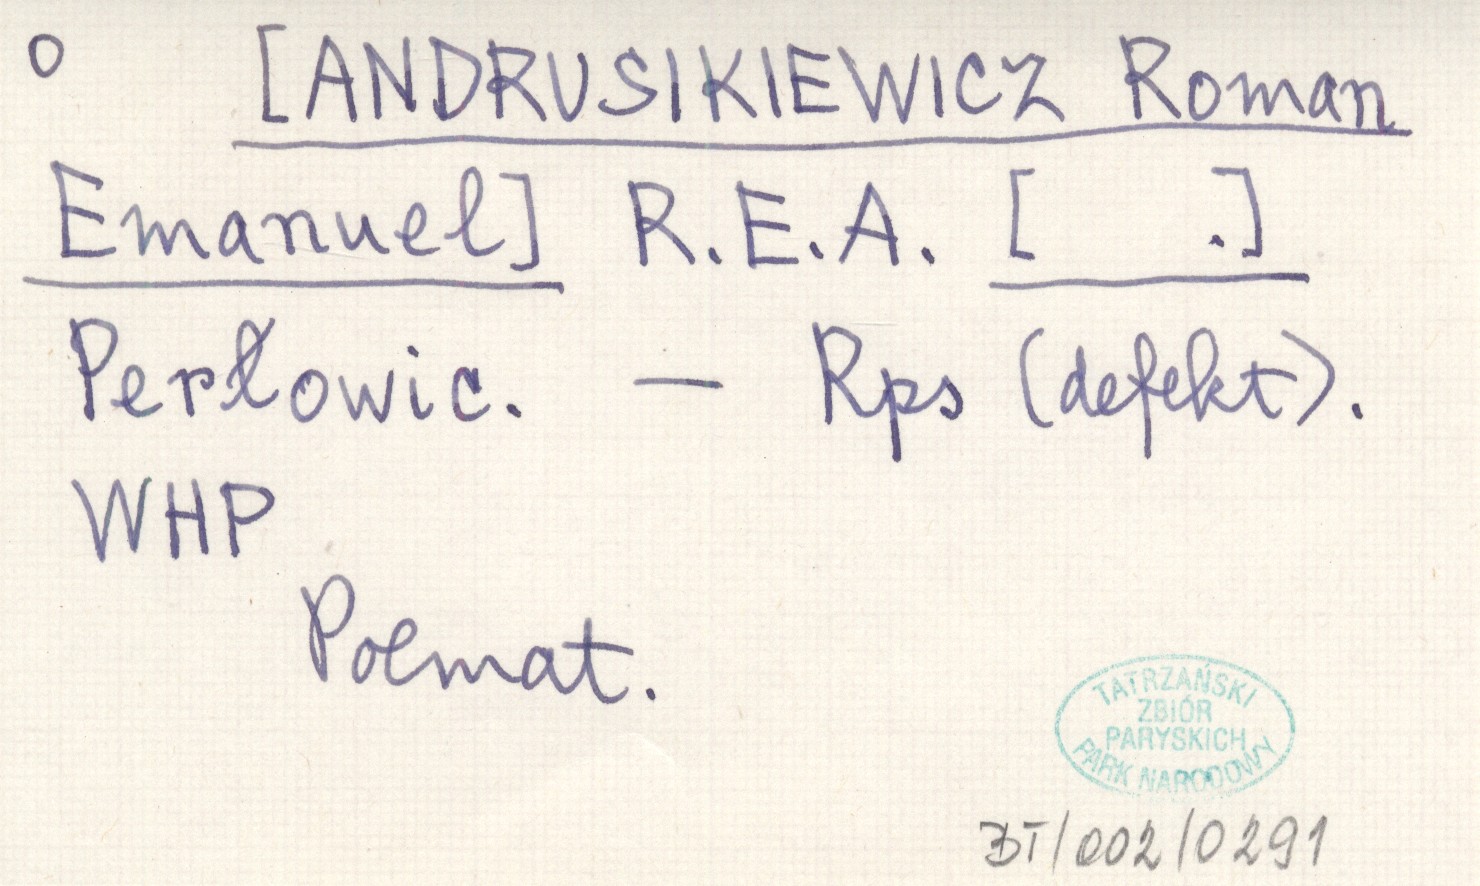 O [ANDRUSIKIEWICZ Roman
Emanuel] R.E.A. [ .]
Perłowic. — Rps (defekt).
WHP
Poemat.
TATRZAŃSKI
ZBIÓR
PARYSKICH
PARK NARODOWY
BT/002/0291